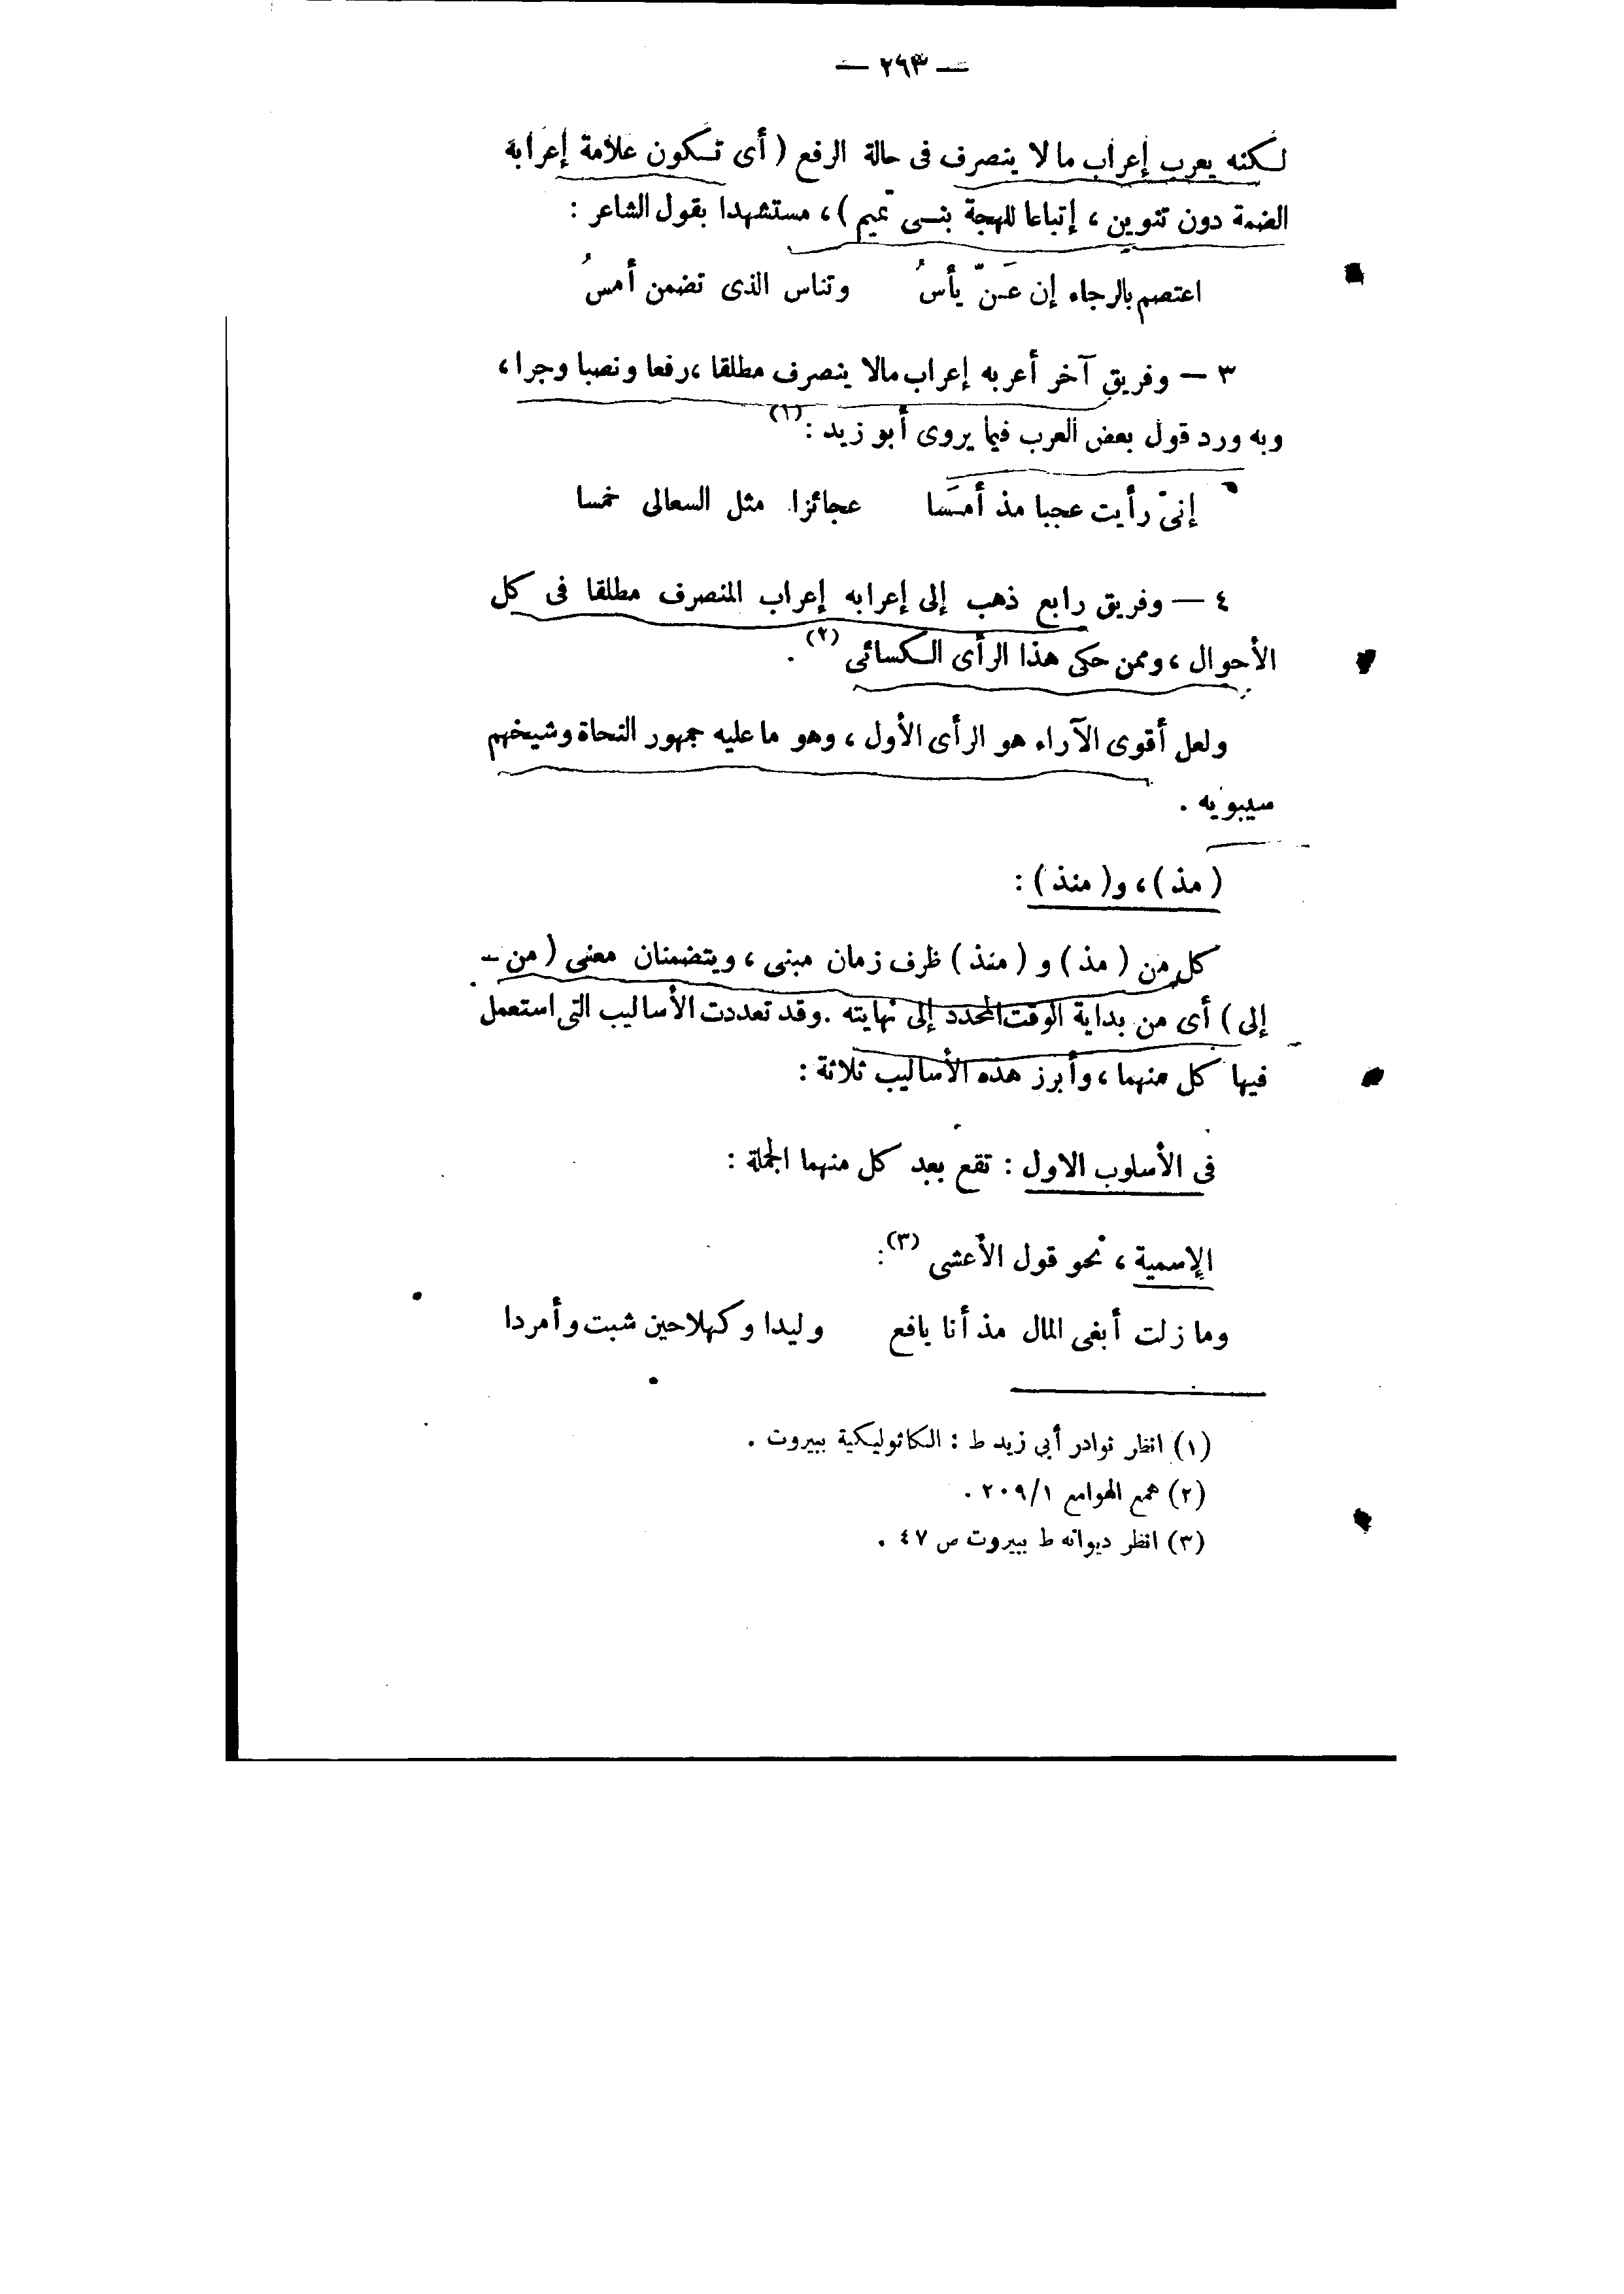 — ٢٦٣ —
لكنه يعرب إعراب ما لا ينصرف فى حالة الرفع ( أى تكون علامة إعرابه
الضمة دون تنوين ، إتباعا للهجة بنى تميم ) ، مستشهدا بقول الشاعر :
اعتصم بالرجاء إن عَنّ يأسُ وتناس الذى تضمن أمسُ
٣ — وفريق آخر أعربه إعراب مالا ينصرف مطلقا ، رفعا ونصبا وجرا ،
وبه ورد قول بعض العرب فيما يروى أبو زيد : (١)
إنىّ رأيت عجبا مذ أمسَا عجائزا مثل السعالى خمسا
٤ — وفريق رابع ذهب إلى إعرابه إعراب المنصرف مطلقا فى كل
الأحوال ، وممن حكى هذا الرأى الكسائى (٢) .
ولعل أقوى الآراء هو الرأى الأول ، وهو ما عليه جمهور النحاة وشيخهم
سيبويه .
( مذ ) ، و ( منذ ) :
كل من ( مذ ) و ( منذ ) ظرف زمان مبنى ، ويتضمنان معنى ( من –
إلى ) أى من بداية الوقت المحدد إلى نهايته . وقد تعددت الأساليب التى استعمل
فيها كل منهما ، وأبرز هذه الأساليب ثلاثة :
فى الأسلوب الاول : تقع بعد كل منهما الجملة :
الإسمية ، نحو قول الأعشى (٣) :
وما زلت أبغى المال مذ أنا يافع وليدا وكهلا حين شبت وأمردا
(١) انظر نوادر أبى زيد ط : الكاثوليكية ببيروت .
(٢) همع الهوامع ١/٢٠٩ .
(٣) انظر ديوانه ط بيروت ص ٤٧ .